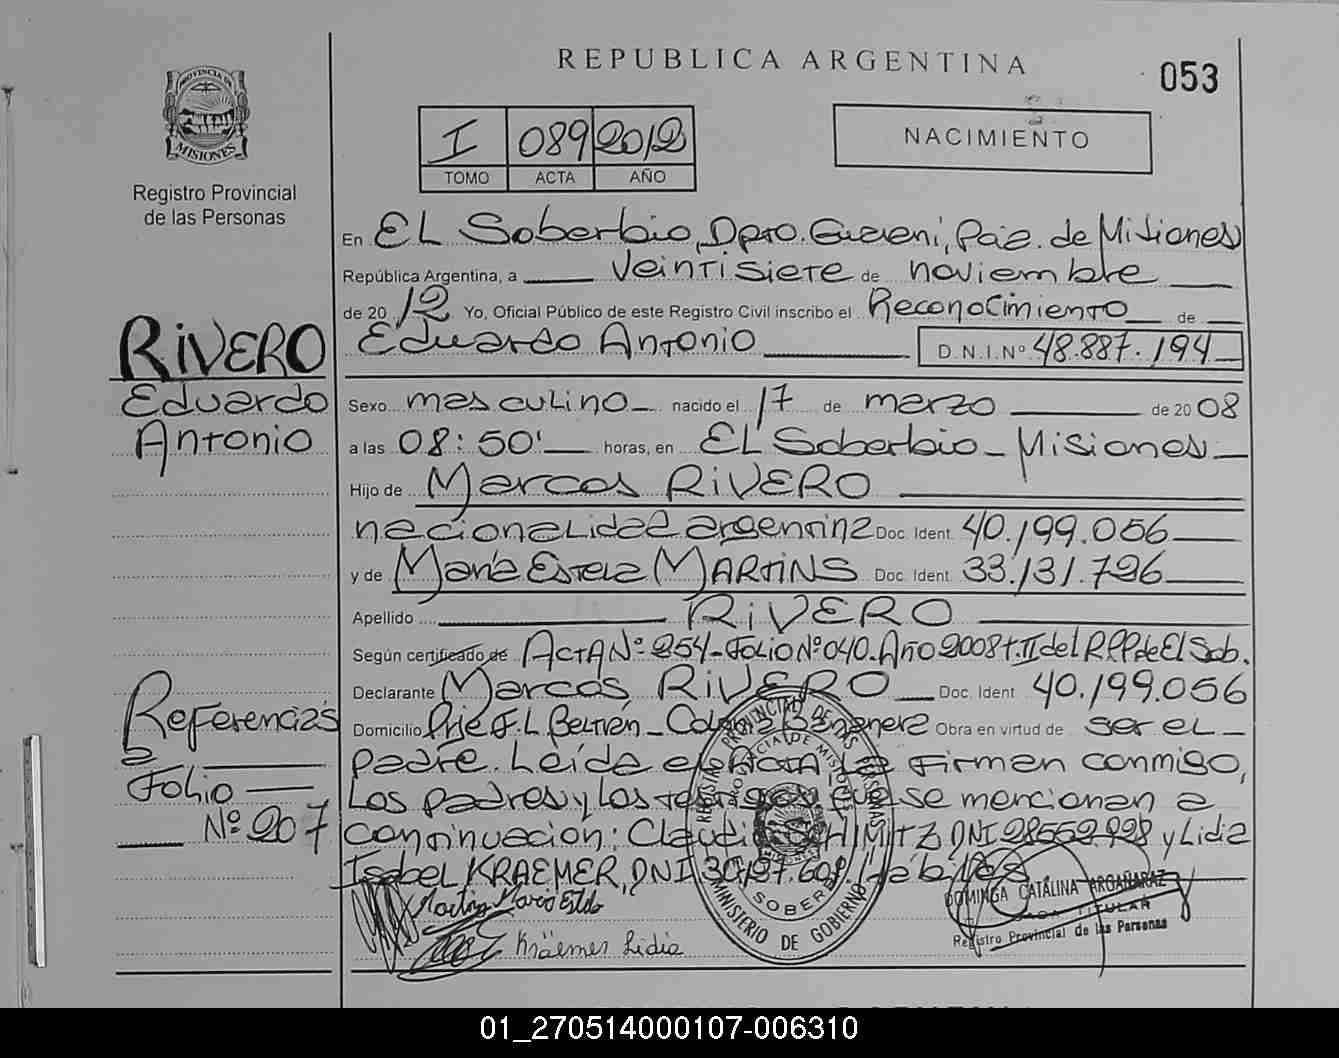 REPUBLICA ARGENTINA
053
PROVINCIA DE
MISIONES
Registro Provincial
de las Personas
I 089 2012
TOMO ACTA AÑO
NACIMIENTO
En El Soberbio, Dpto. Guaraní, Pcia. de Misiones
República Argentina, a veintisiete de noviembre
de 2012 Yo, Oficial Público de este Registro Civil inscribo el Reconocimiento de
Eduardo Antonio D.N.I.Nº 48.887.194
RIVERO
Eduardo
Antonio
Sexo masculino nacido el 17 de marzo de 2008
a las 08:50' horas, en El Soberbio - Misiones
Hijo de Marcos RIVERO
nacionalidad argentina Doc. Ident. 40.199.056
y de María Estela MARTINS Doc. Ident. 33.131.726
Apellido RIVERO
Según certificado de ACTA Nº 254 - Folio Nº 040. Año 2008 t. II del R.P.P de El Sob.
Declarante Marcos RIVERO Doc. Ident 40.199.056
Domicilio Pje F. L. Beltrán - Colonia Bananera Obra en virtud de ser el
padre. Leída el Acta La firman conmigo,
Los padres y Los testigos que se mencionan a
continuacion: Claudio SCHIMITZ DNI 28552.928 y Lidia
Isabel KRAEMER, DNI 608. hábiles
Referencias
a
Folio
Nº 207
Kräemer Lidia
REGISTRO PROVINCIAL DE LAS PERSONAS
PROVINCIA DE MISIONES
SOBERB
MINISTERIO DE GOBIERNO
DOMINGA CATALINA ARGAÑARAZ
TITULAR
Registro Provincial de las Personas
01_270514000107-006310